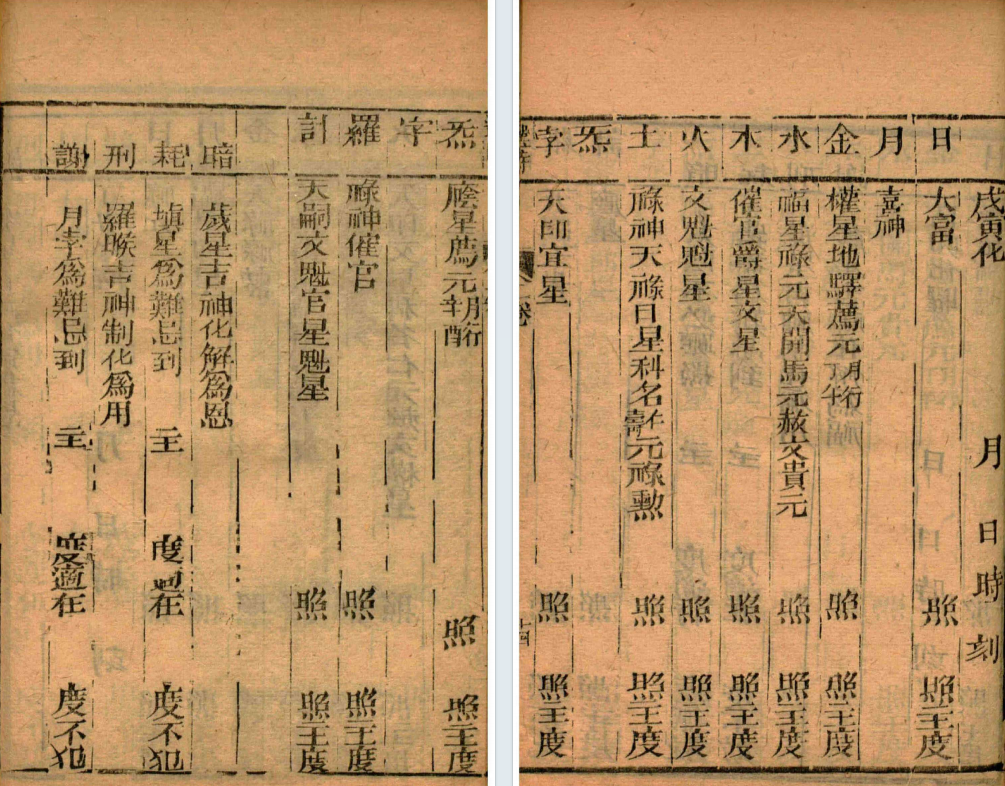 戊寅化 月 日 時 刻
日 大富 照 照主度
月 嘉神
金 權星地驛薦元 照 照主度
水 福星祿元天開馬元赦文貴元 照 照主度
木 催官爵星文星 照 照主度
火 文魁魁星 照 照主度
土 祿神天祿日星科名 元祿勳 照 照主度
炁
孛 天印宜星 照 照主度
卷
十四
炁 廕星薦元 照 照主度
字
羅 祿神催官 照 照主度
計 天嗣文魁官星魁星 照 照主度
暗 歲星吉神化解為恩
耗 塡星為難忌到 主 度 在 度不犯
刑 羅睺吉神制化為用
謝 月孛為難忌到 主 度適在 度不犯